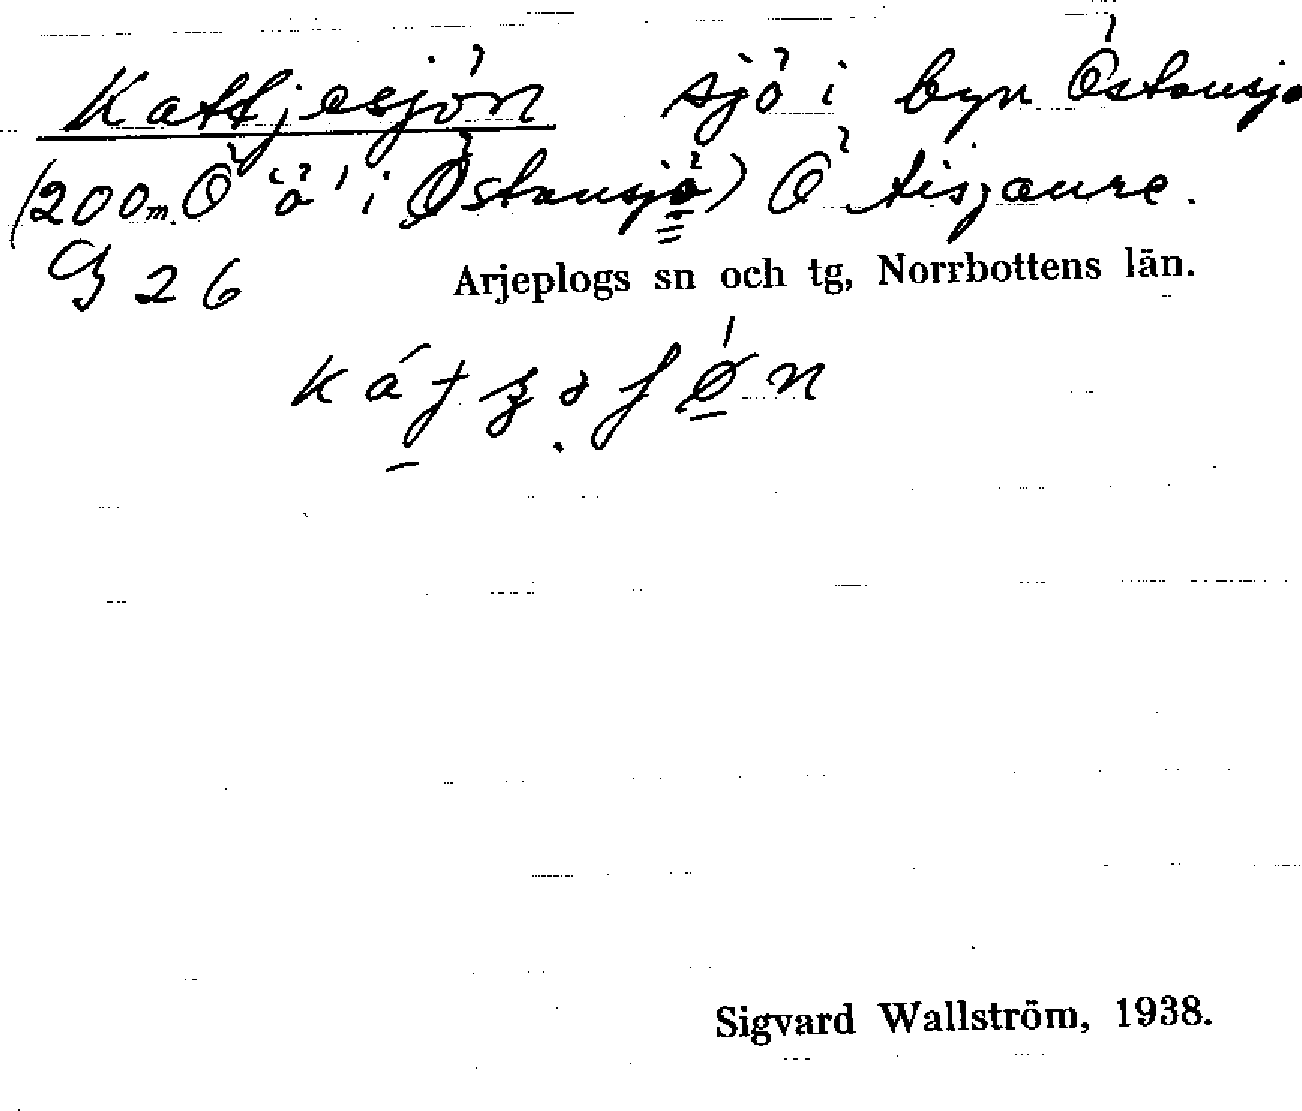 Kattjesjön sjö i byn Östansjö
(200 m. Ö "ö" i Östansjö) Ö Tisjaure.
G 26 Arjeplogs sn och tg, Norrbottens län.
Sigvard Wallström, 1938.